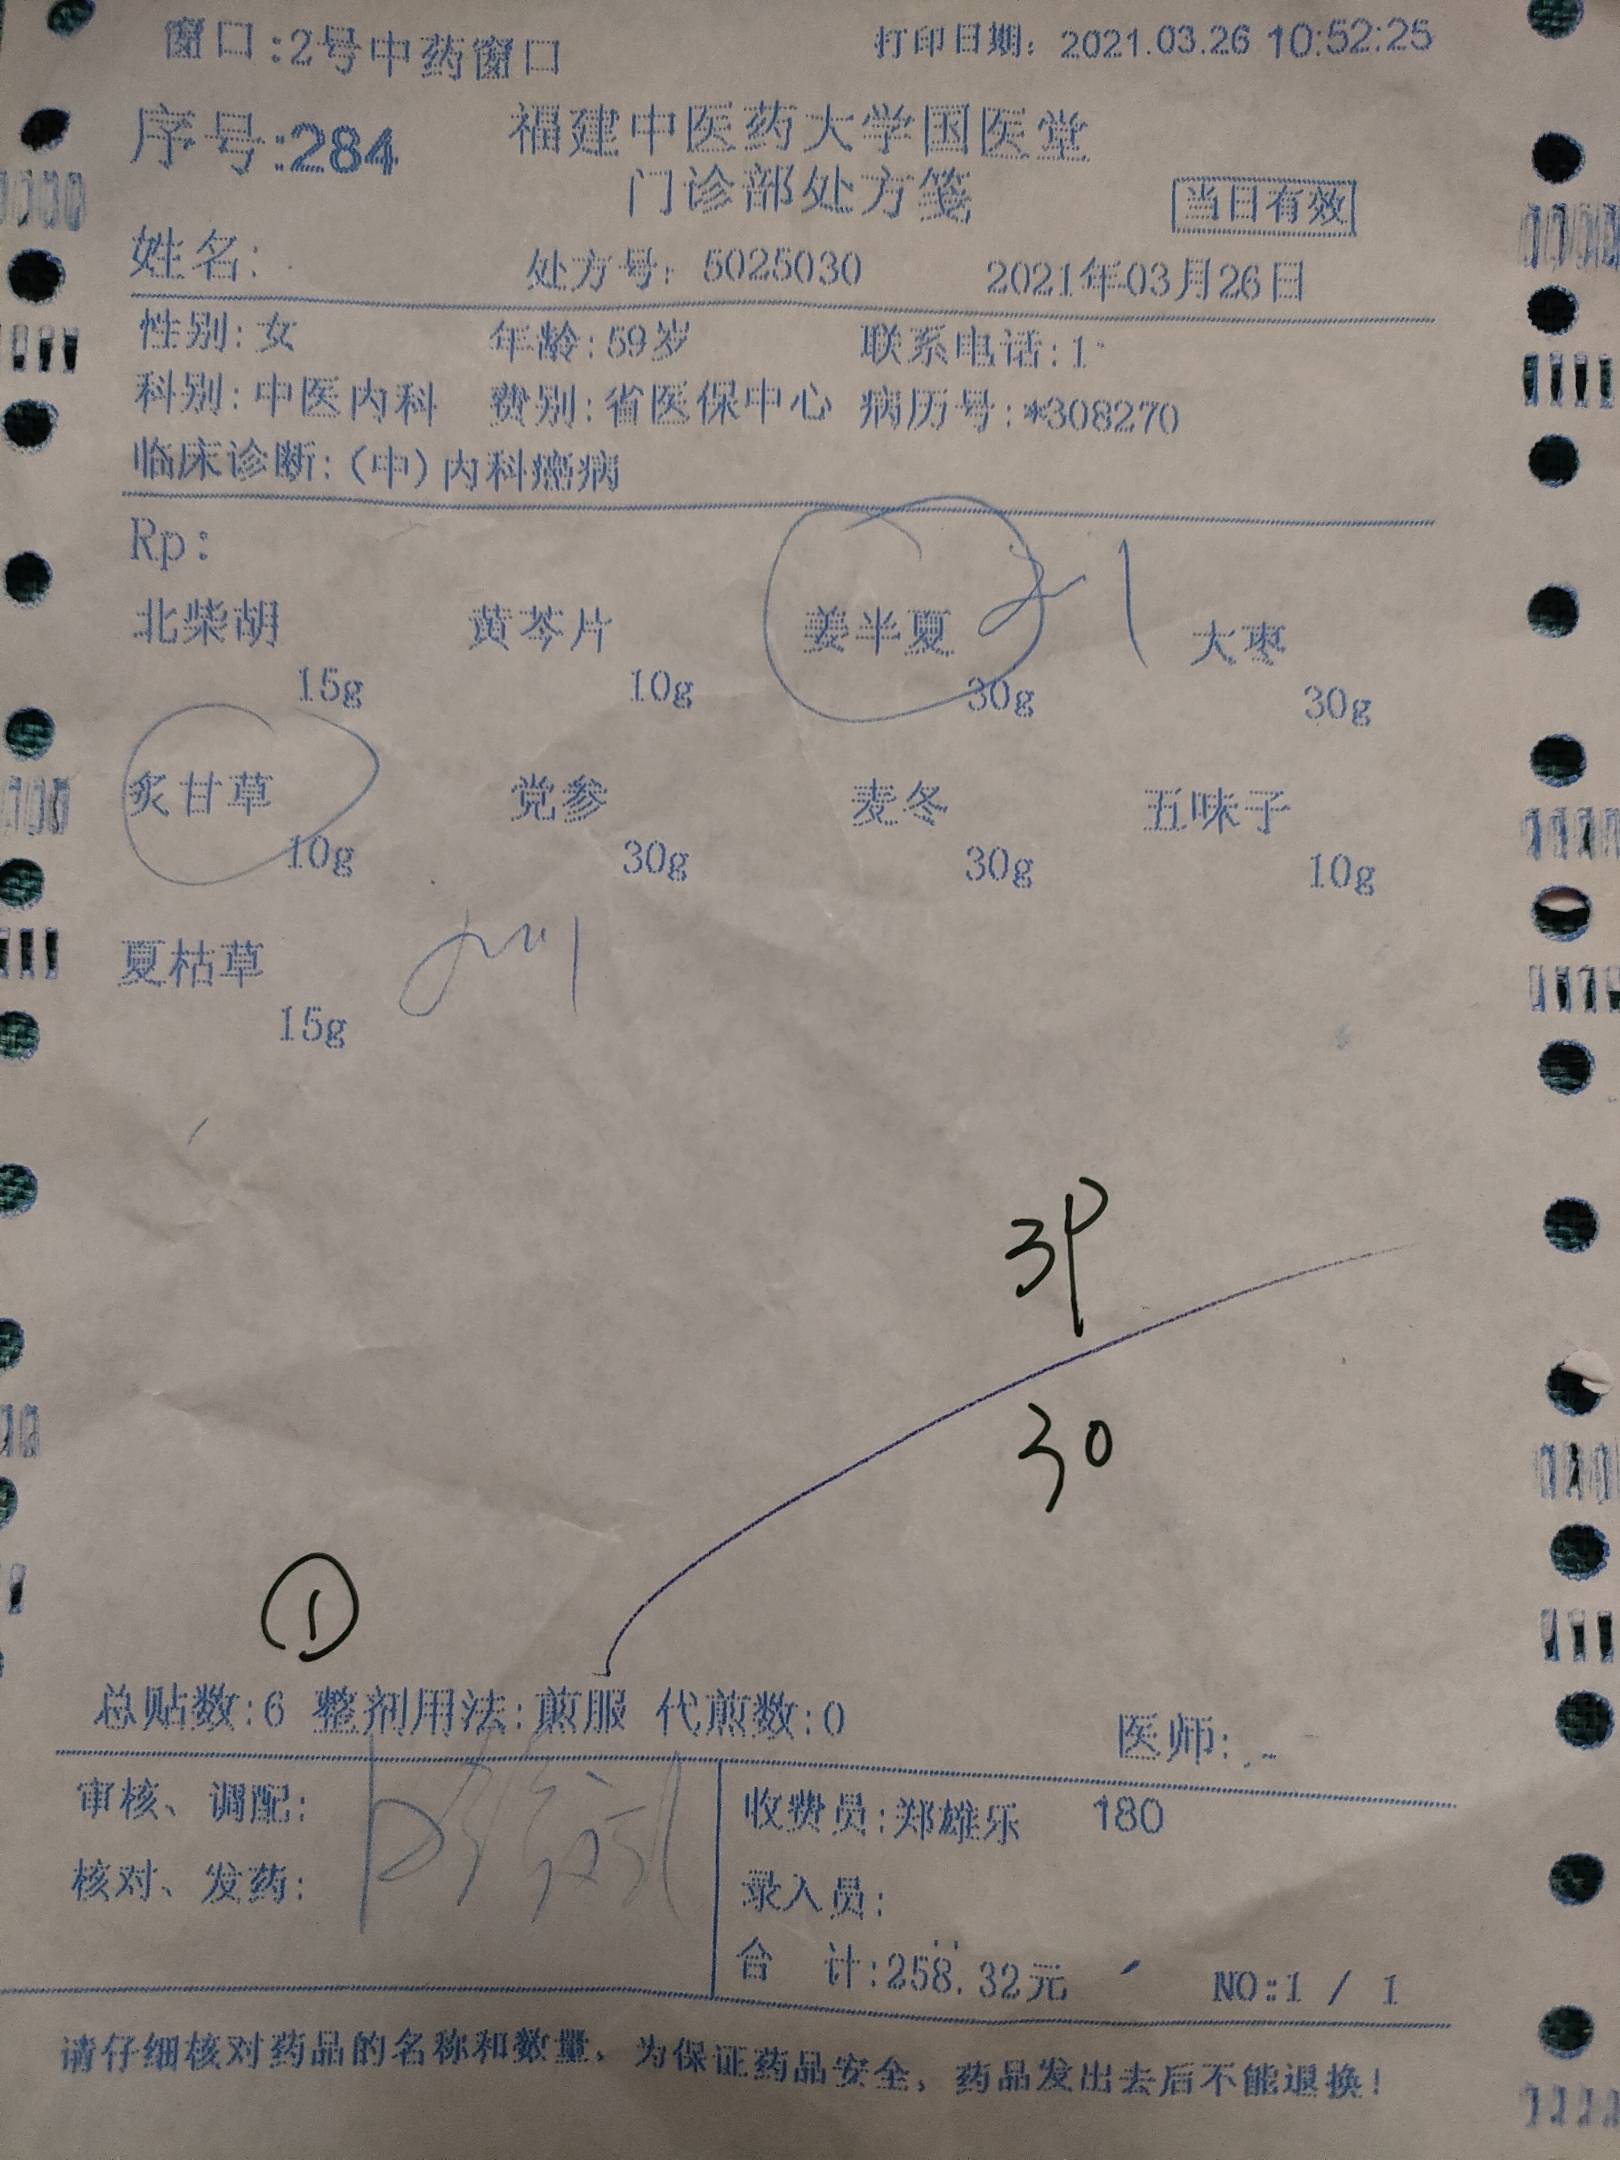 窗口:2号中药窗口 打印日期: 2021.03.26 10:52:25
序号:284 福建中医药大学国医堂
门诊部处方笺 当日有效
姓名: 处方号: 5025030 2021年03月26日
性别:女 年龄:59岁 联系电话:1
科别:中医内科 费别:省医保中心 病历号:*308270
临床诊断:(中)内科癌病
Rp:
北柴胡 黄芩片 姜半夏 大枣
15g 10g 30g 30g
炙甘草 党参 麦冬 五味子
10g 30g 30g 10g
夏枯草
15g
3P
30
①
总贴数:6 整剂用法:煎服 代煎数:0 医师:
审核、调配: 收费员:郑雄乐 180
核对、发药: 录入员:
合 计:258.32元 NO:1 / 1
请仔细核对药品的名称和数量、为保证药品安全,药品发出去后不能退换!